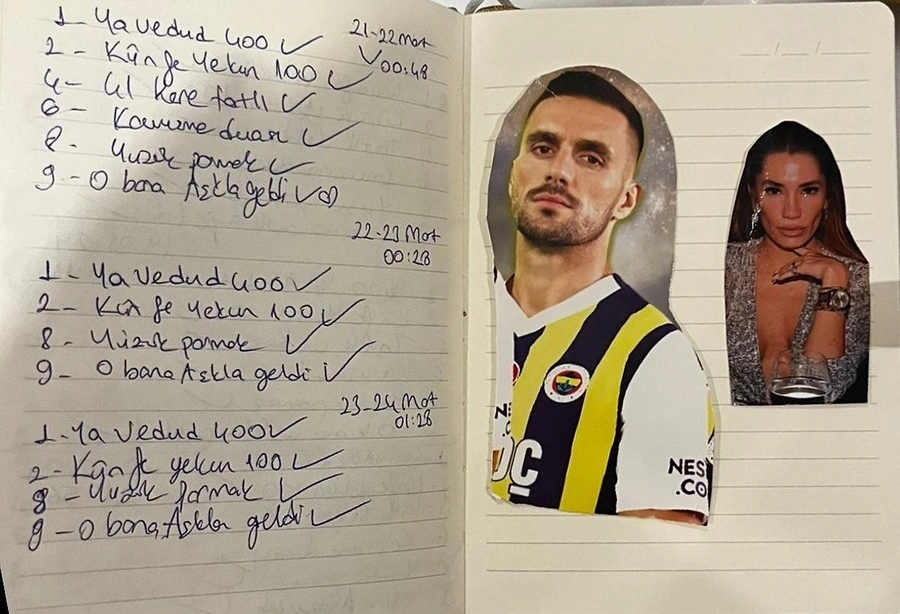 1- Ya Vedud 400 ✓
21-22 Mart
00:48
2- Kün fe Yekün 100 ✓
4- 41 kere fatlı ✓
6- duası ✓
8- Yüzük parmak ✓
9- O bana Aşkla geldi ✓
22-23 Mart
00:28
1- Ya Vedud 400 ✓
2- Kün fe Yekün 100 ✓
8- Yüzük parmak ✓
9- O bana Aşkla geldi ✓
23-24 Mart
01:28
1- Ya Vedud 400 ✓
2- Kün fe yekün 100 ✓
8- Yüzük parmak ✓
9- O bana Aşkla geldi ✓
NES
.CO